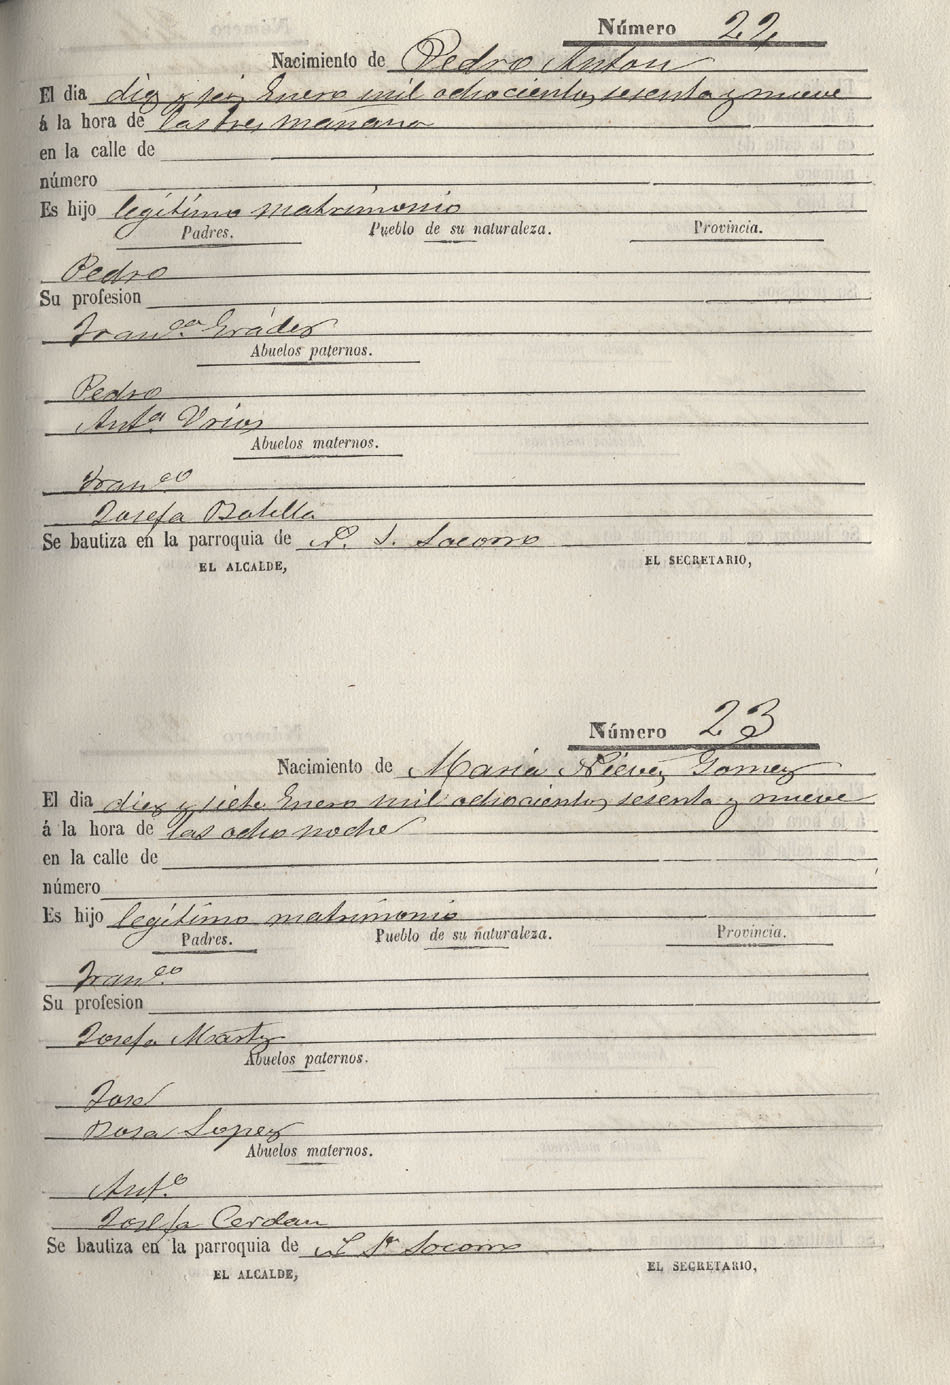 Número 22
Nacimiento de Pedro Anton
El dia diez y seis Enero mil ochocientos sesenta y nueve
á la hora de las tres mañana
en la calle de
número
Es hijo legítimo matrimonio
Padres. Pueblo de su naturaleza. Provincia.
Pedro
Su profesion
Fran.ca Gráder
Abuelos paternos.
Pedro
Ant.a Urios
Abuelos maternos.
Fran.co
Josefa Botella
Se bautiza en la parroquia de N. S. Socorro
EL ALCALDE, EL SECRETARIO,
Número 23
Nacimiento de Maria Nieves Gomez
El dia diez y siete Enero mil ochocientos sesenta y nueve
á la hora de las ocho noche
en la calle de
número
Es hijo legítimo matrimonio
Padres. Pueblo de su naturaleza. Provincia.
Fran.co
Su profesion
Josefa Martz
Abuelos paternos.
José
Rosa Lopez
Abuelos maternos.
Ant.o
Josefa Cerdan
Se bautiza en la parroquia de Socorro
EL ALCALDE, EL SECRETARIO,